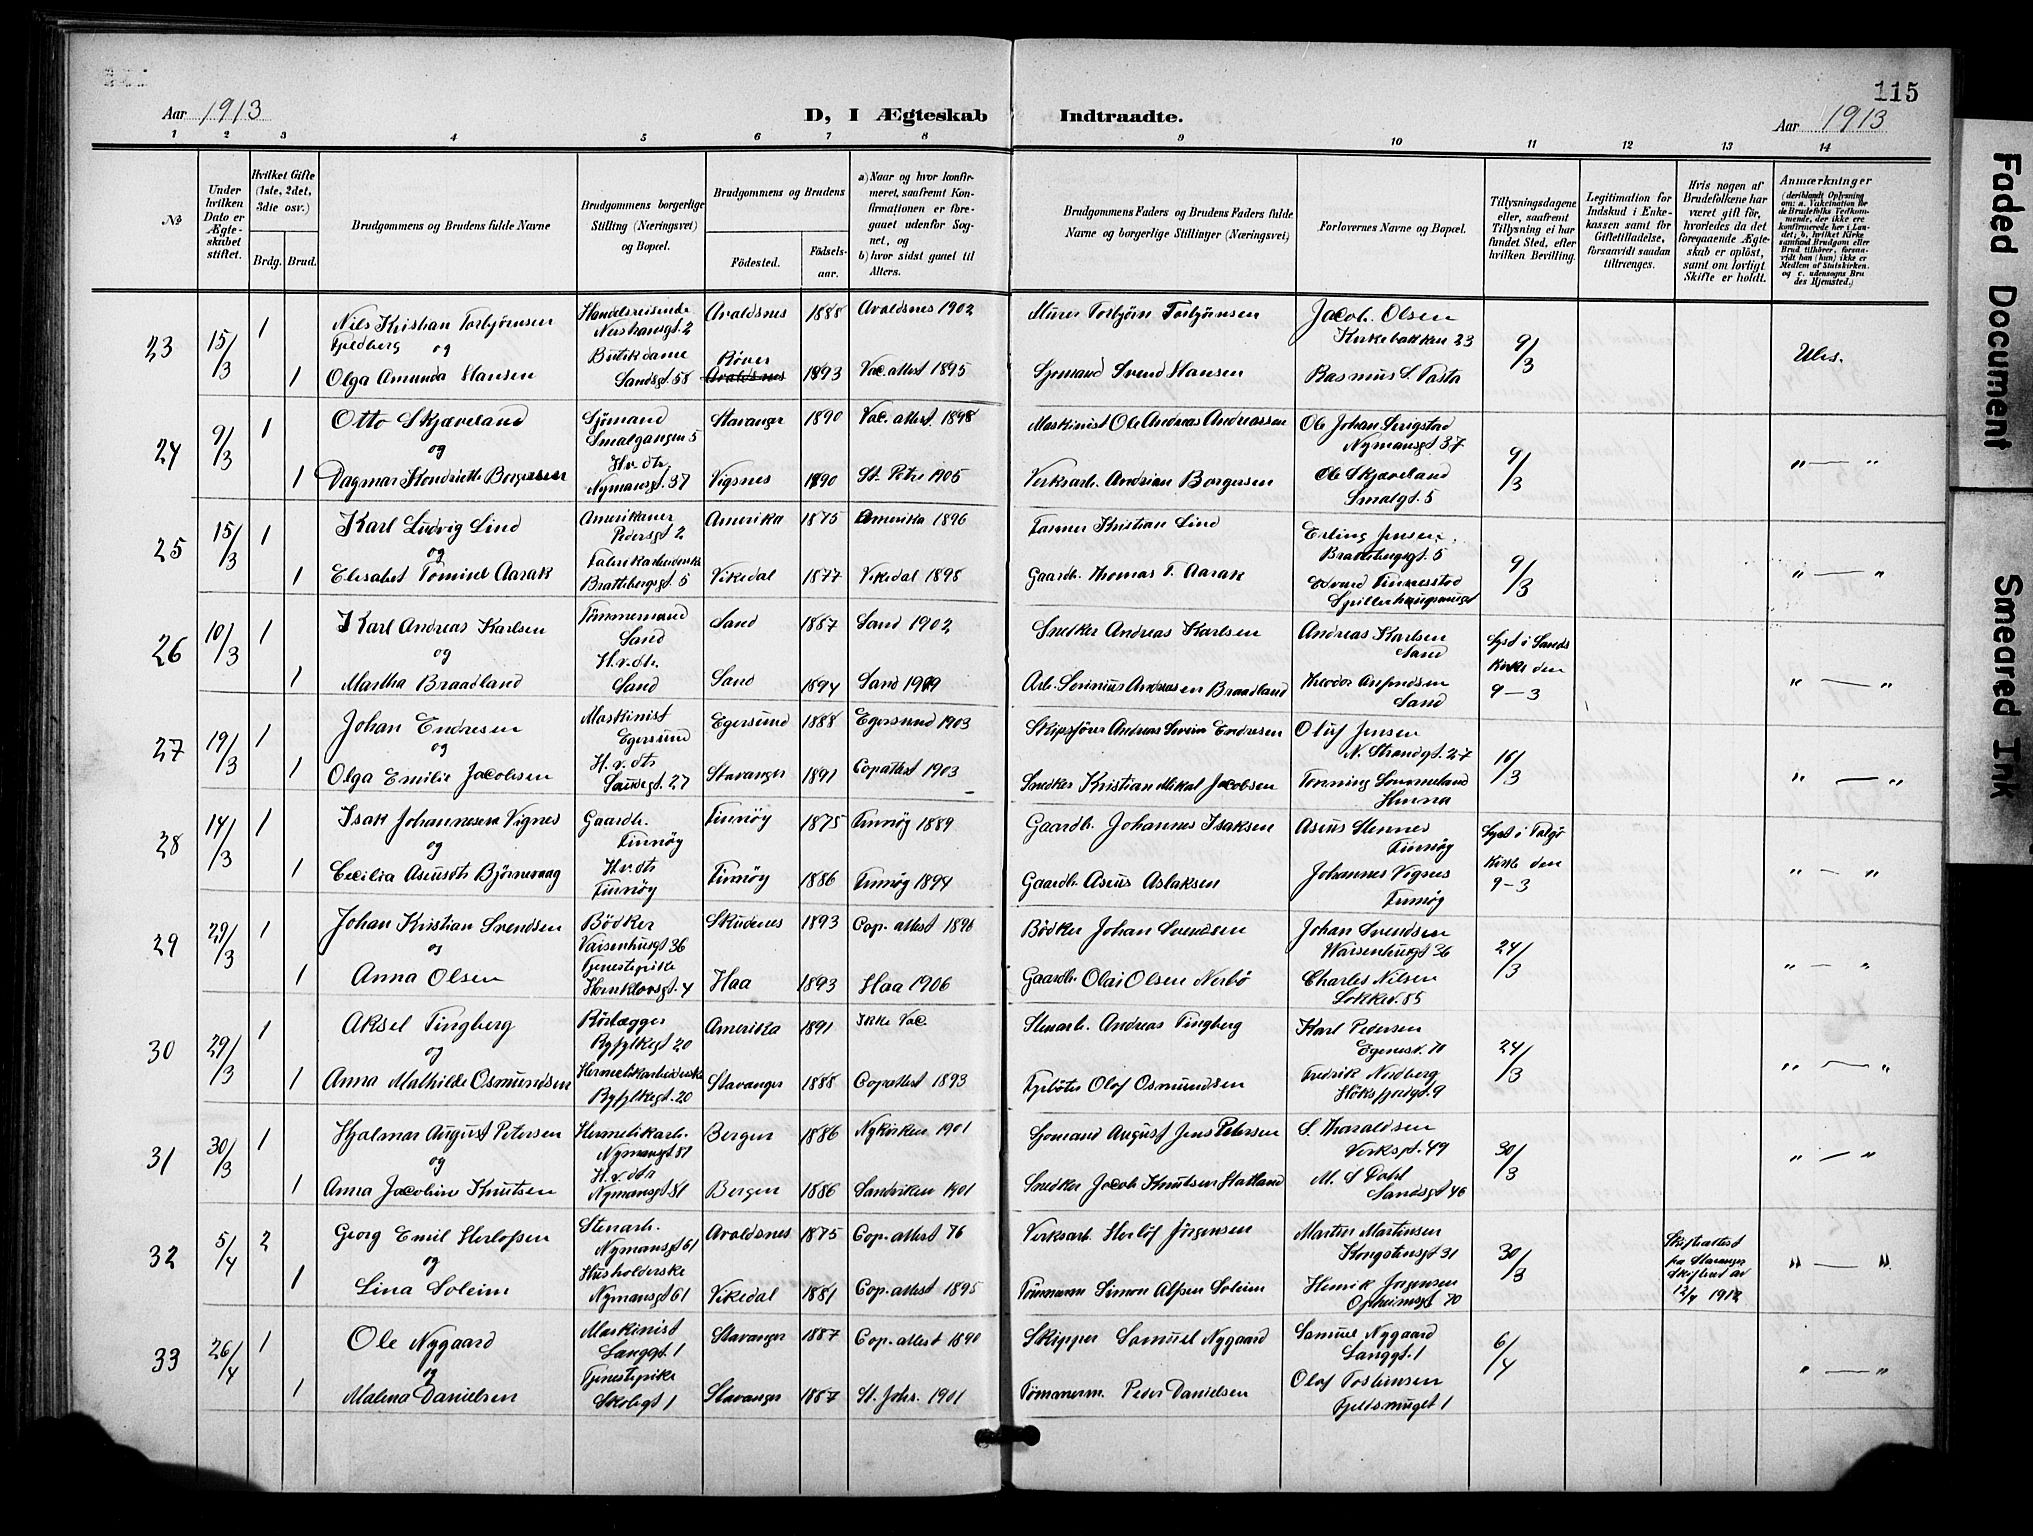 115
Aar 1913
D, I Ægteskab Indtraadte.
Aar 1913
1 2 3 4 5 6 7 8 9 10 11 12 13 14
No
Under hvilken Dato er Ægteskabet stiftet.
Hvilket Gifte (1ste, 2det, 3die osv.)
Brdg. Brud.
Brudgommens og Brudens fulde Navne
Brudgommens borgerlige Stilling (Næringsvei) og Bopæl.
Brudgommens og Brudens
Fødested.
Fødselsaar.
a) Naar og hvor konfirmeret, saafremt Konfirmationen er foregaaet udenfor Sognet, og
b) hvor sidst gaaet til Alters.
Brudgommens Faders og Brudens Faders fulde Navne og borgerlige Stillinger (Næringsvei)
Forlovernes Navne og Bopæl.
Tillysningsdagene eller, saafremt Tillysning ei har fundet Sted, efter hvilken Bevilling.
Legitimation for Indskud i Enkekassen samt for Giftetilladelse, forsaavidt saadan tiltrænges.
Hvis nogen af Brudefolkene har været gift før, hvorledes da det foregaaende Ægteskab er opløst, samt om lovligt Skifte er holdt.
Anmærkninger
(deriblandt Oplysning om: a. Vakcination for de Brudefolks Vedkommende, der ikke ere konfirmerede her i Landet; b. hvilket Kirkesamfund Brudgom eller Brud tilhører, forsaavidt han (hun) ikke er Medlem af Statskirken, og c. udensogns Brudes Hjemsted.)
23 15/3 1 Nils Kristian Torbjørnsen Fjeldberg Handelsreisende Avaldsnes 1888 Avaldsnes 1902 Murer Torbjørn Torbjørnsen Jacob Olsen Kirkebakken 23 9/3 Ubs.
og
1 Olga Amunda Hansen Butikdame Sandsgt. 58 Avaldsnes 1893 Vac. attest 1895 Sjømand Svend Hansen Rasmus S. Tasta
24 9/3 1 Otto Skjæveland Sjømand Smalgangen 5 Stavanger 1890 Vac. attest 1898 Maskinist Ole Andreas Andreassen Ole Johan Serigstad Nymansgt. 37 9/3 " — "
og
1 Dagmar Hendriette Borgersen H.v. dtr. Nymansgt. 37 Vigsnes 1890 St. Petri 1905 Verksarb. Andrian Borgersen Ole Skjæveland Smalgt. 5
25 15/3 1 Karl Ludvig Lind Amerikaner Pedersgt 2 Amerika 1875 Amerika 1896 Farmer Kristian Lind Erling Jensen Brattebergsgt. 5 9/3 " — "
og
1 Elisabet Tomine Aarak Fabrikarbeiderske Brattebergsgt. 5 Vikedal 1877 Vikedal 1898 Gaardb. Thomas T. Aarak Edvard Finnestad
26 10/3 1 Karl Andreas Karlsen Tømmermand Sand Sand 1887 Sand 1902 Snedker Andreas Karlsen Andreas Karlsen Sand Lyst i Sands Kirke den 9-3 " — "
og
1 Martha Braadland H.v. dtr. Sand Sand 1894 Sand 1909 Arb. Andreasen Braadland Theodor Sand
27 19/3 1 Johan Endresen Maskinist Egersund Egersund 1888 Egersund 1903 Skipsfører Andreas Endresen Oluf Jensen N. Strandgt. 27 16/3 " — "
og
1 Olga Emilie Jacobsen H.v. dtr. 27 Stavanger 1891 Copattest 1903 Snedker Kristian Mikal Jacobsen Henning Sømmeland Hinna
28 14/3 1 Isak Johannesen Vignes Gaardb. Finnøy Finnøy 1875 Finnøy 1889 Gaardb. Johannes Isaksen Asius Stennes Finnøy Lyst i Talgø Kirke den 9-3 " — "
og
1 Cecilia Asiusdtr Bjørnevaag H.v. dtr Finnøy Finnøy 1886 Finnøy 1894 Gaardb. Asius Aslaksen Johannes Vignes Finnøy
29 29/3 1 Johan Kristian Svendsen Bødker Vaisenhusgt 36 Skudenes 1893 Cop. attest 1896 Bødker Johan Svendsen Johan Svendsen Waisenhusgt 36 24/3 " — "
og
1 Anna Olsen Tjenestepike Hornklovsgt. 4 Haa 1893 Haa 1906 Gaardb. Olai Olsen Nerbø Charles Nilsen Løkkev. 85
30 29/3 1 Aksel Tingberg Rørlægger Ryfylkegt. 20 Amerika 1891 Ikke Vac. Stenarb. Andreas Tingberg Karl Pedersen Egenesv. 70 24/3 " — "
og
1 Anna Mathilde Osmundsen Hermetikarbeiderske Ryfylkegt. 20 Stavanger 1888 Copattest 1893 Fyrbøter Olof Osmundsen Fredrik Nordberg 9
31 30/3 1 Hjalmar August Petersen Hermetikarb. Nymansgt 81 Bergen 1886 Nykirken 1901 Sjømand August Jens Petersen S. Tharaldsen Verksgt. 49 30/3 " — "
og
1 Anna Jacobine Knutsen H.v. dtr Nymansgt 81 Bergen 1886 Sandviken 1901 Snedker Jacob Knutsen Hatland M. S Dahl Sandsgt 46
32 5/4 2 Georg Emil Herlofsen Stenarb. Nymansgt 61 Avaldsnes 1875 Cop. attest 76 Verksarb. Herlof Jørgensen Martin Martinsen Kongstensgt 31 30/3 Skifteattest fra Stavanger Skifteret av 12/4 1912 " — "
og
1 Lina Soleim Husholderske Nymansgt 61 Vikedal 1881 Cop. attest 1895 Tømmerm Simon Alfsen Soleim Henrik Jørgensen Opheimsgt 70
33 26/4 1 Ole Nygaard Maskinist Langgt. 1 Stavanger 1887 Cop. attest 1890 Skipper Samuel Nygaard Samuel Nygaard Langgt. 1 6/4 " — "
og
1 Malena Danielsen Tjenestepike Skolegt 1 Stavanger 1887 St. Johs. 1901 Tømmerm. Peder Danielsen Olof Tostensen Fjeldsmuget 1
Faded Document
Smeared Ink